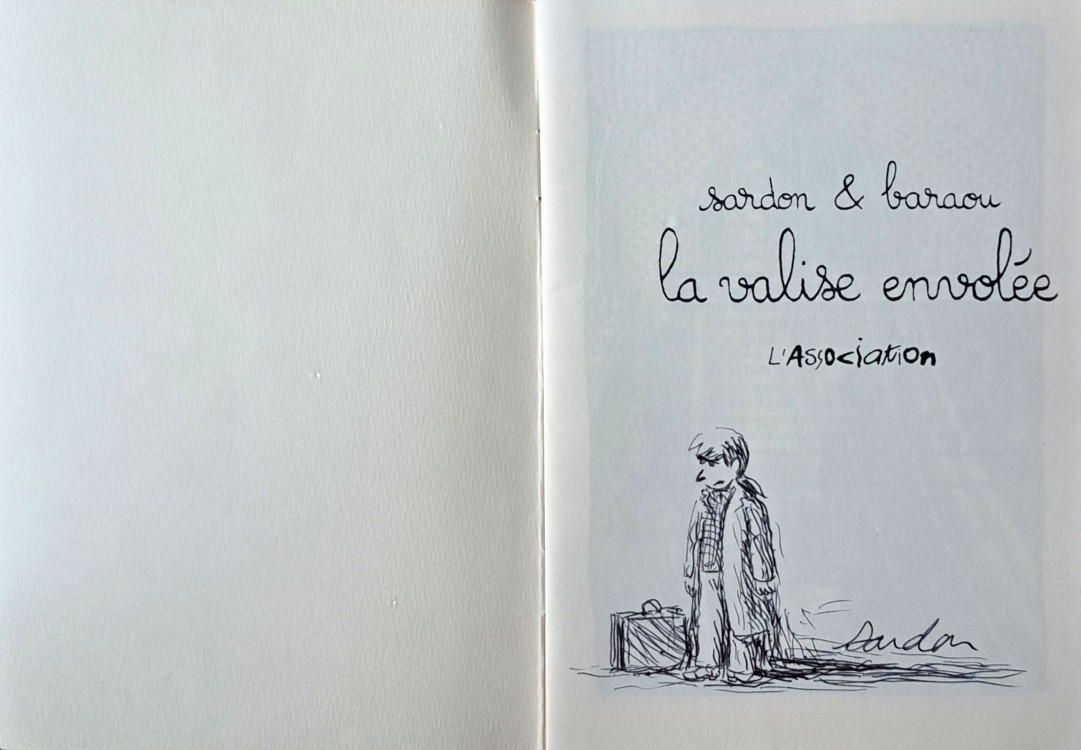 sardon & baraou
la valise envolée
L'Association
sardon